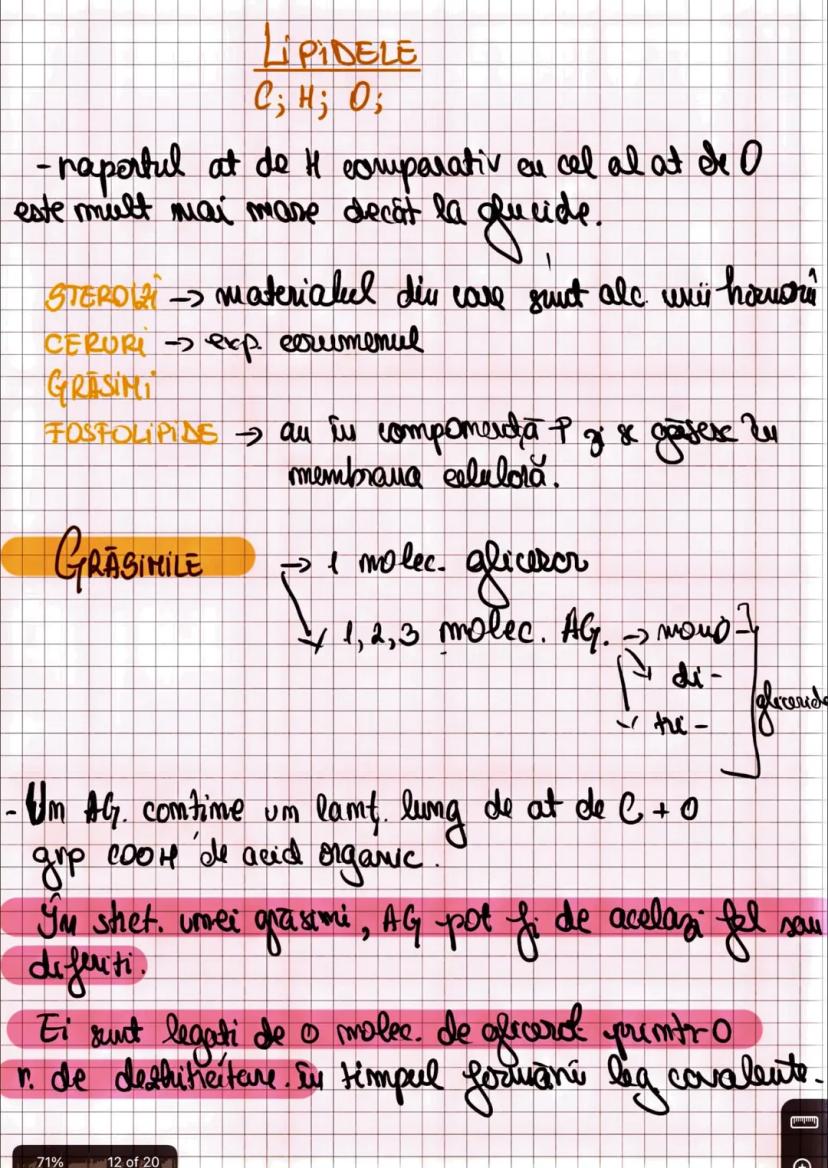 LIPIDELE
C; H; O;
- raportul at de H comparativ cu cel al at de O
este mult mai mare decât la glucide.
STEROLI -> materialul din care sunt alc. unii hormoni
CERURI -> exp. cerumenul
GRĂSIMI
FOSFOLIPIDE -> au în componență P și se găsesc în
membrana celulară.
GRĂSIMILE -> 1 molec. glicerol
1, 2, 3 molec. AG. -> mono-
di-
tri-
gliceride
- Un AG. conține un lanț. lung de at de C + o
grp COOH de acid organic.
În struct. unei grăsimi, AG pot fi de același fel sau
diferiti.
Ei sunt legati de o molec. de glicerol printr-o
r. de deshidratare. în timpul formării leg covalente.
71% 12 of 20